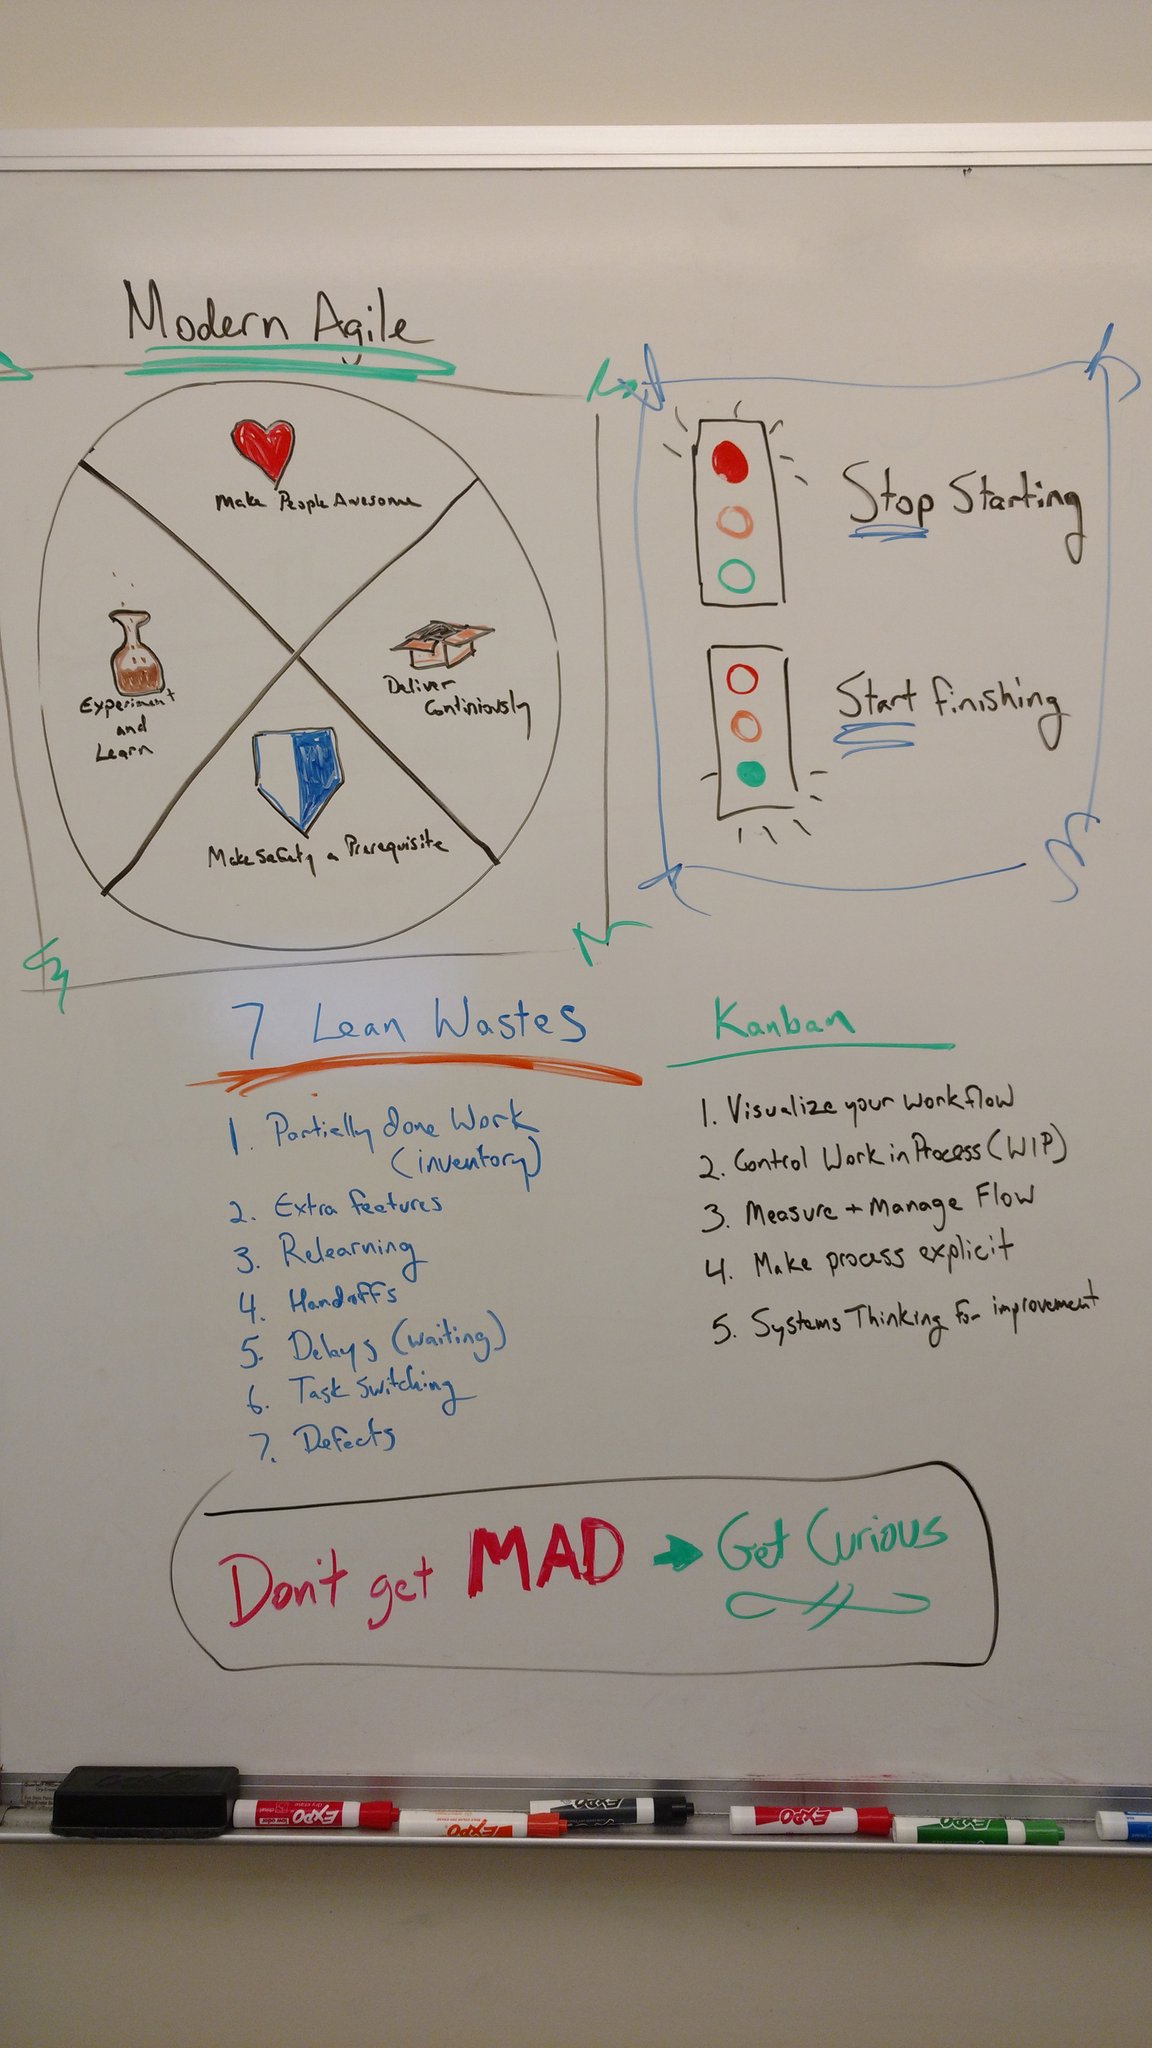 Modern Agile
Make People Awesome
Experiment
and
Learn
Deliver
Continiously
Make Safety a Prerequisite
Stop Starting
Start finishing
7 Lean Wastes
1. Partially done Work
(inventory)
2. Extra features
3. Relearning
4. Handoffs
5. Delays (waiting)
6. Task switching
7. Defects
Kanban
1. Visualize your workflow
2. Control Work in Process (WIP)
3. Measure + Manage Flow
4. Make process explicit
5. Systems Thinking for improvement
Don't get MAD → Get Curious
EXPO
EXPO
EXPO
EXPO
EXPO